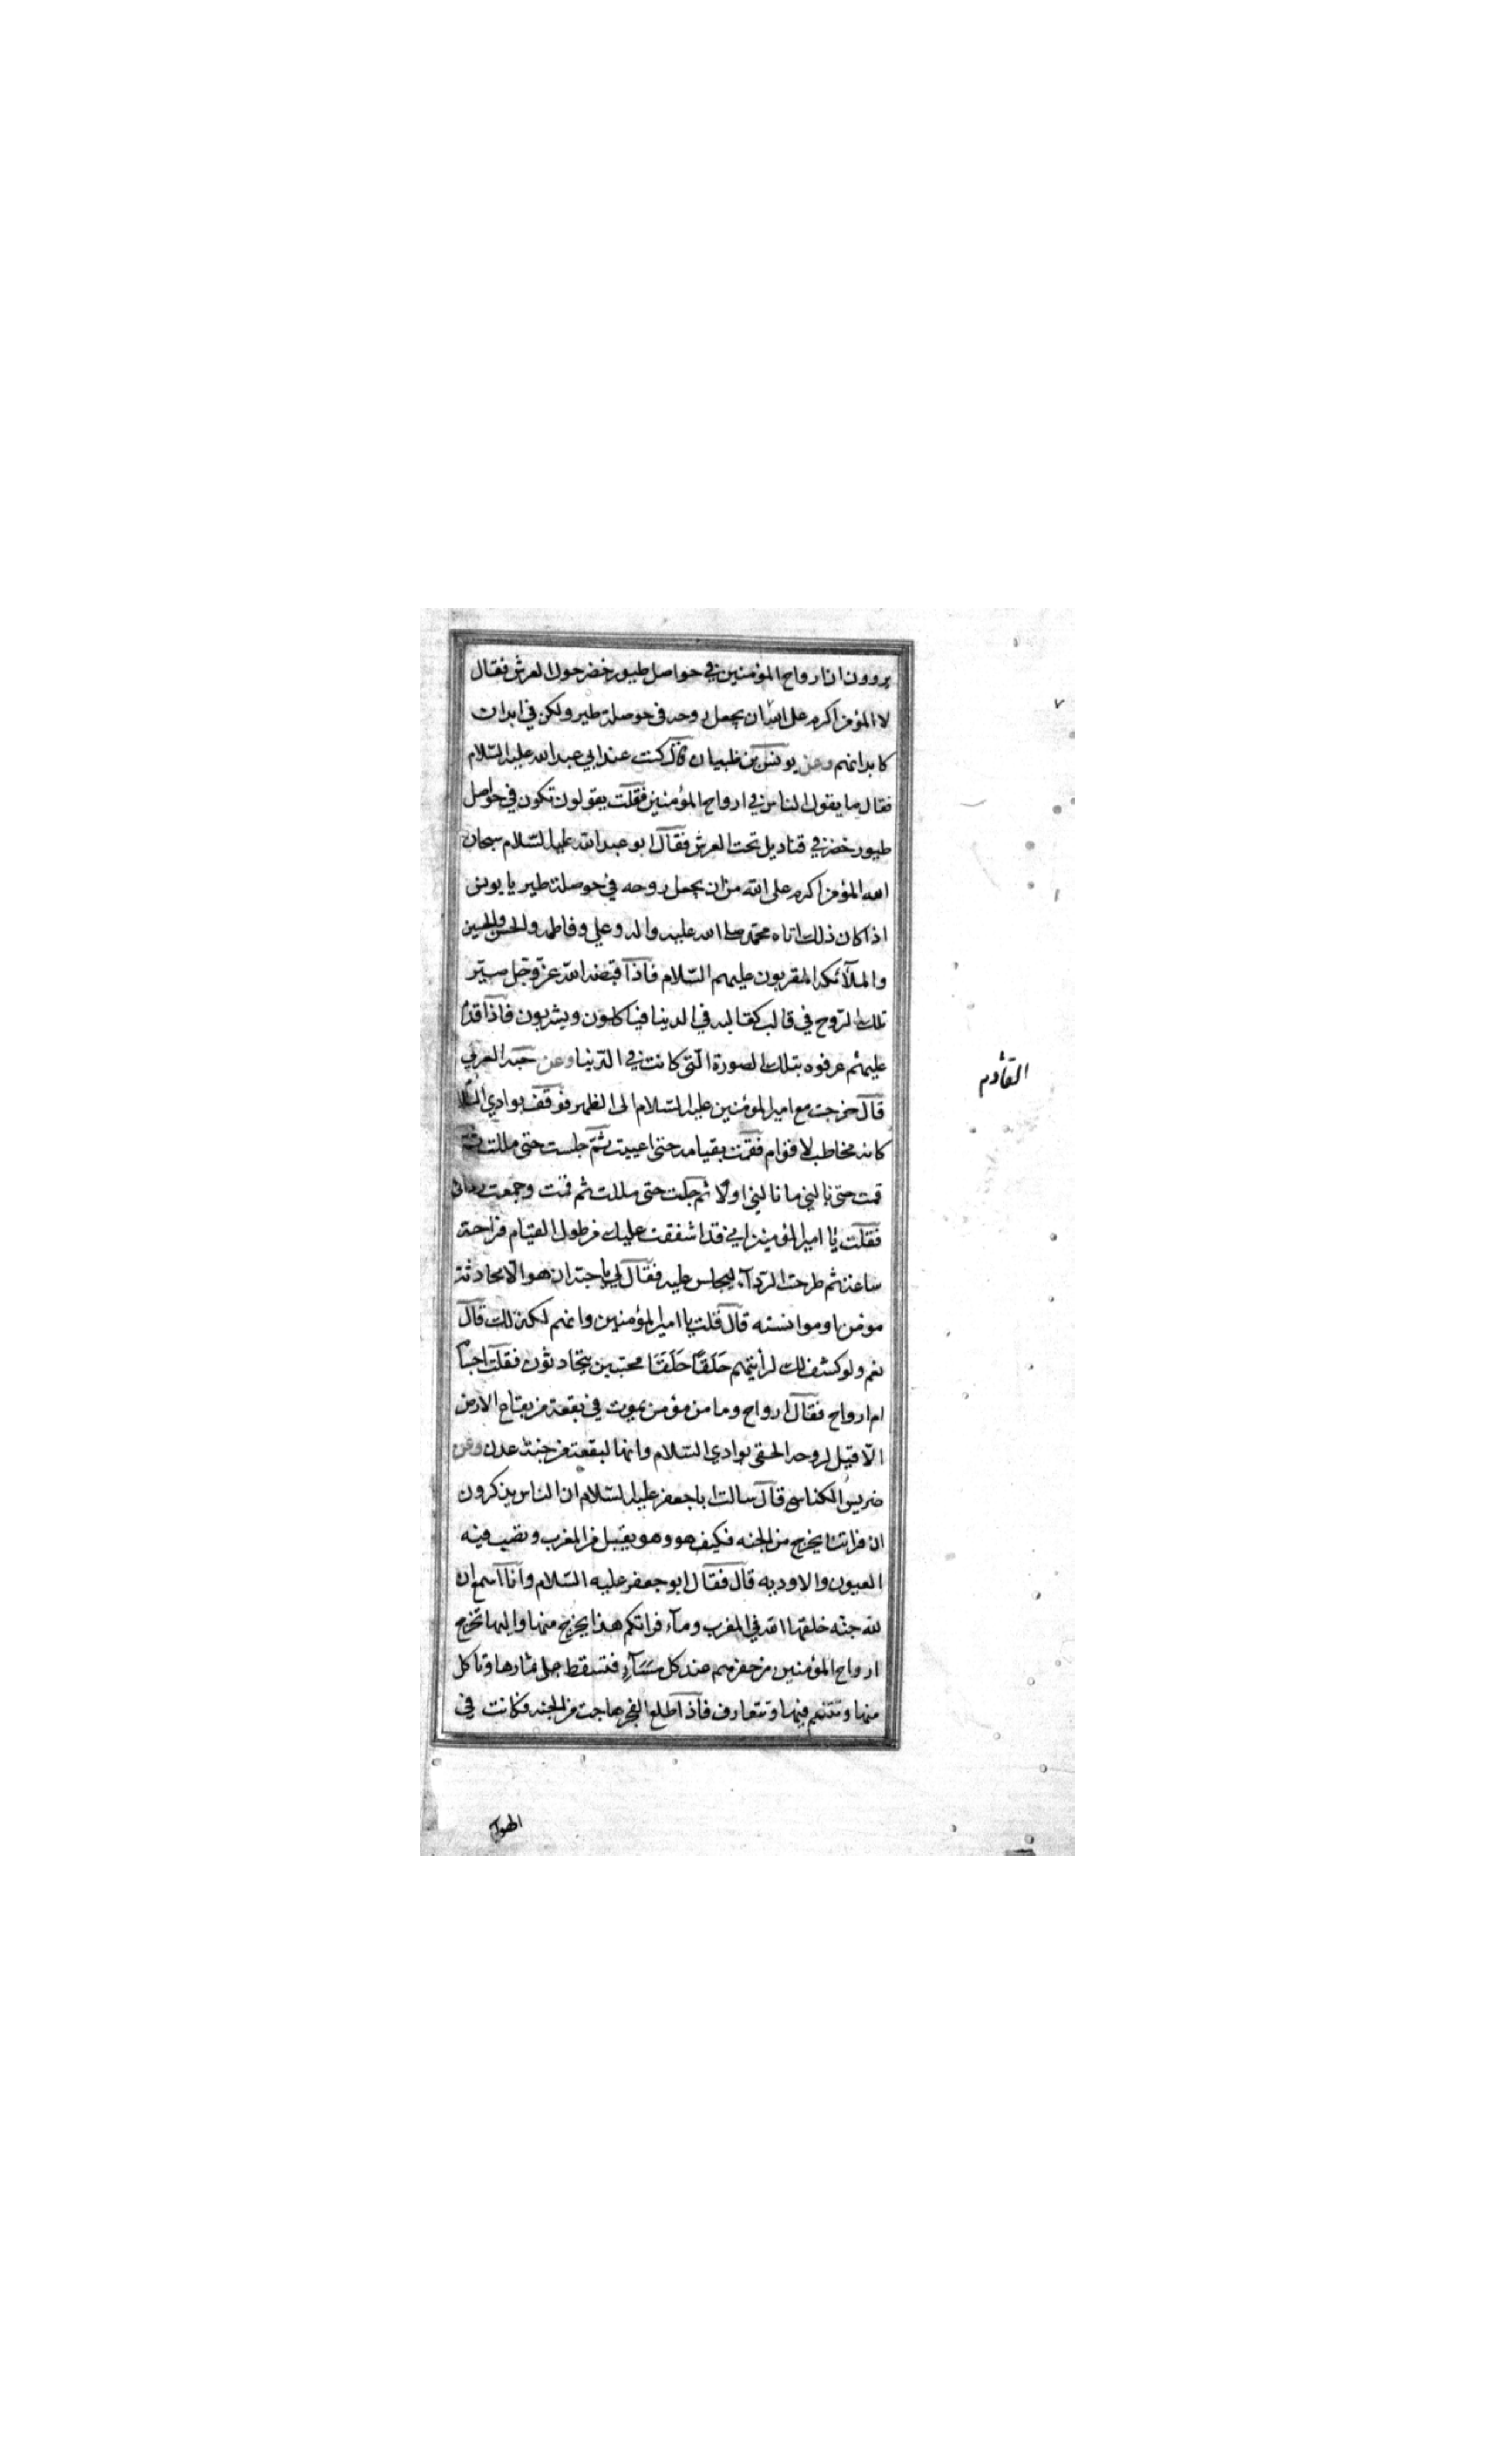 يروون ان ارواح المؤمنين في حواصل طيور خضر حول العرش فقال
لا المؤمن اكرم على الله ان يجعل روحه في حوصلة طير ولكن في ابدان
كابدانهم وعن يونس بن ظبيان قال كنت عند ابي عبد الله عليه السلام
فقال ما يقول الناس في ارواح المؤمنين فقلت يقولون تكون في حواصل
طيور خضر في قناديل تحت العرش فقال ابو عبد الله عليه السلام سبحان
الله المؤمن اكرم على الله من ان يجعل روحه في حوصلة طير يا يونس
اذا كان ذلك اتاه محمد صلى الله عليه واله وعلي وفاطمه والحسن والحسين
والملآئكه المقربون عليهم السلام فاذا قبضه الله عز وجل صير
تلك الروح في قالب كقالبه في الدنيا فياكلون ويشربون فاذا قدم
عليهم عرفوه بتلك الصورة التي كانت في الدنيا وعن حبه العرني
القادم
قال خرجت مع امير المؤمنين عليه السلام الى الظهر فوقف بوادي السلام
كانه مخاطب لاقوام فقمت بقيامه حتى اعييت ثم جلست حتى مللت ثم
قمت حتى نالني ما نالني اولا ثم جلست حتى مللت ثم قمت وجمعت ردائي
فقلت يا امير المؤمنين اني قد اشفقت عليك من طول القيام فراحة
ساعة ثم طرحت الردآء ليجلس عليه فقال لي يا حبة ان هو الا محادثة
مومن او موانسته قال قلت يا امير المؤمنين وانهم لكذلك قال
نعم ولو كشف لك لرأيتهم حَلَقًا حَلَقًا محتبين يتحادثون فقلت اجسام
ام ارواح فقال ارواح وما من مؤمن يموت في بقعة من بقاع الارض
الا قيل لروحه الحقي بوادي السلام وانها لبقعة من جنة عدن وعن
ضريس الكناسي قال سالت ابا جعفر عليه السلام ان الناس يذكرون
ان فراتنا يخرج من الجنه فكيف هو وهو يقبل من المغرب وتصب فيه
العيون والاوديه قال فقال ابو جعفر عليه السلام وانا اسمع ان
لله جنه خلقها الله في المغرب ومآء فراتكم هذا يخرج منها واليها تخرج
ارواح المؤمنين من حفرهم عند كل مسآء فتسقط على ثمارها وتاكل
منها وتتنعم فيها وتتعارف فاذا طلع الفجر هاجت من الجنه فكانت في
الهوآء